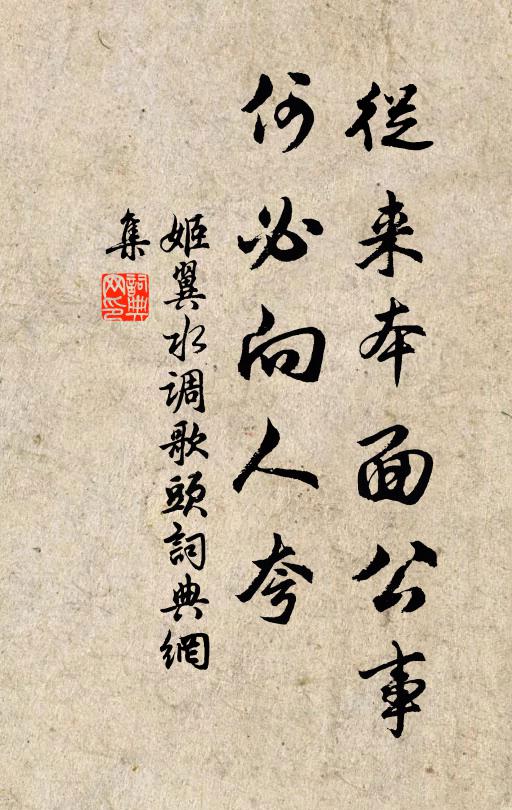 從来本面公事
何必向人夸
姬翼水调歌頭詞典網
集
詞典
网印